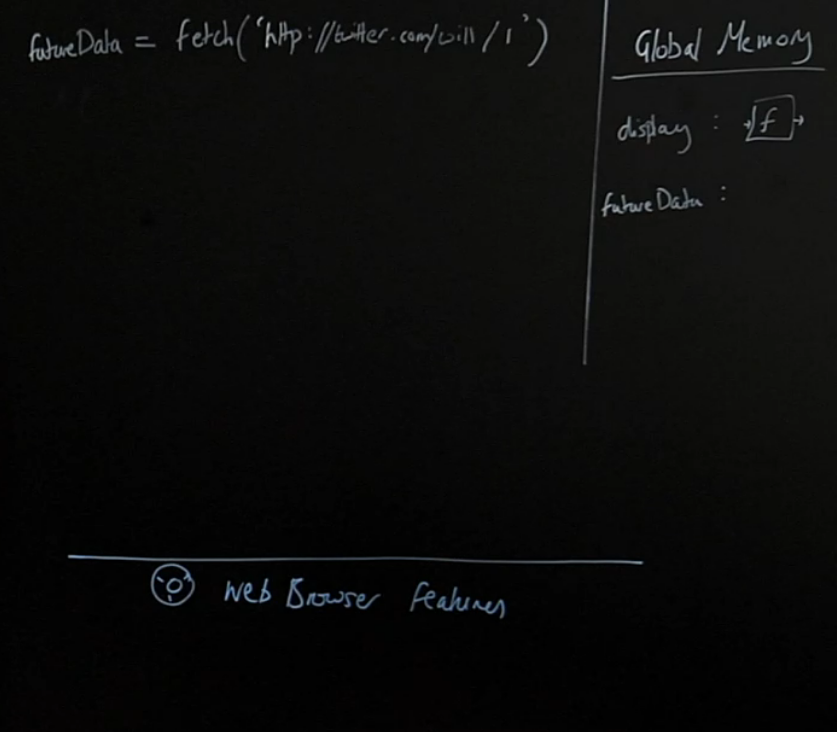 futureData = fetch('http://twitter.com/will/1')
Global Memory
display : f
futureData :
Web Browser Features